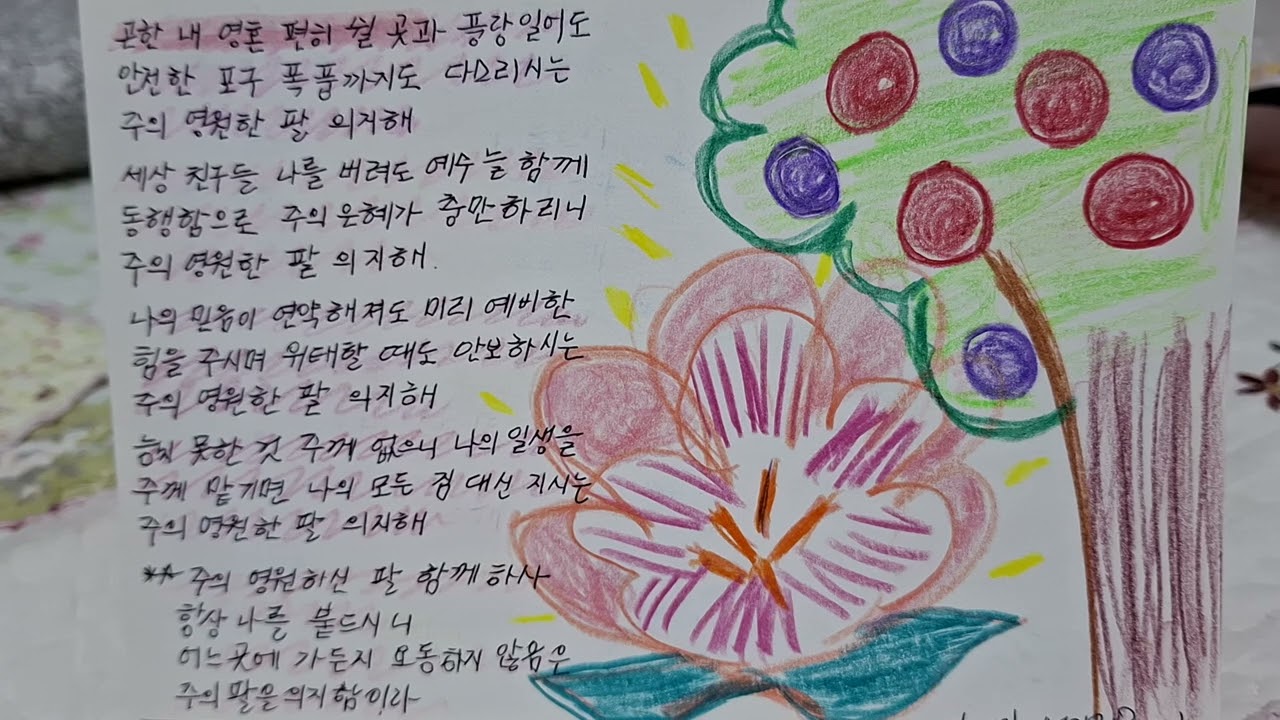 곤한 내 영혼 편히 쉴 곳과 풍랑일어도
안전한 포구 폭풍까지도 다스리시는
주의 영원한 팔 의지해
세상 친구들 나를 버려도 예수 늘 함께
동행함으로 주의 은혜가 충만하리니
주의 영원한 팔 의지해.
나의 믿음이 연약해져도 미리 예비한
힘을 주시며 위태할 때도 안보하시는
주의 영원한 팔 의지해
능치 못한 것 주께 없으니 나의 일생을
주께 맡기면 나의 모든 짐 대신 지시는
주의 영원한 팔 의지해
** 주의 영원하신 팔 함께하사
항상 나를 붙드시니
어느곳에 가든지 요동하지 않음은
주의 팔을의지함이라